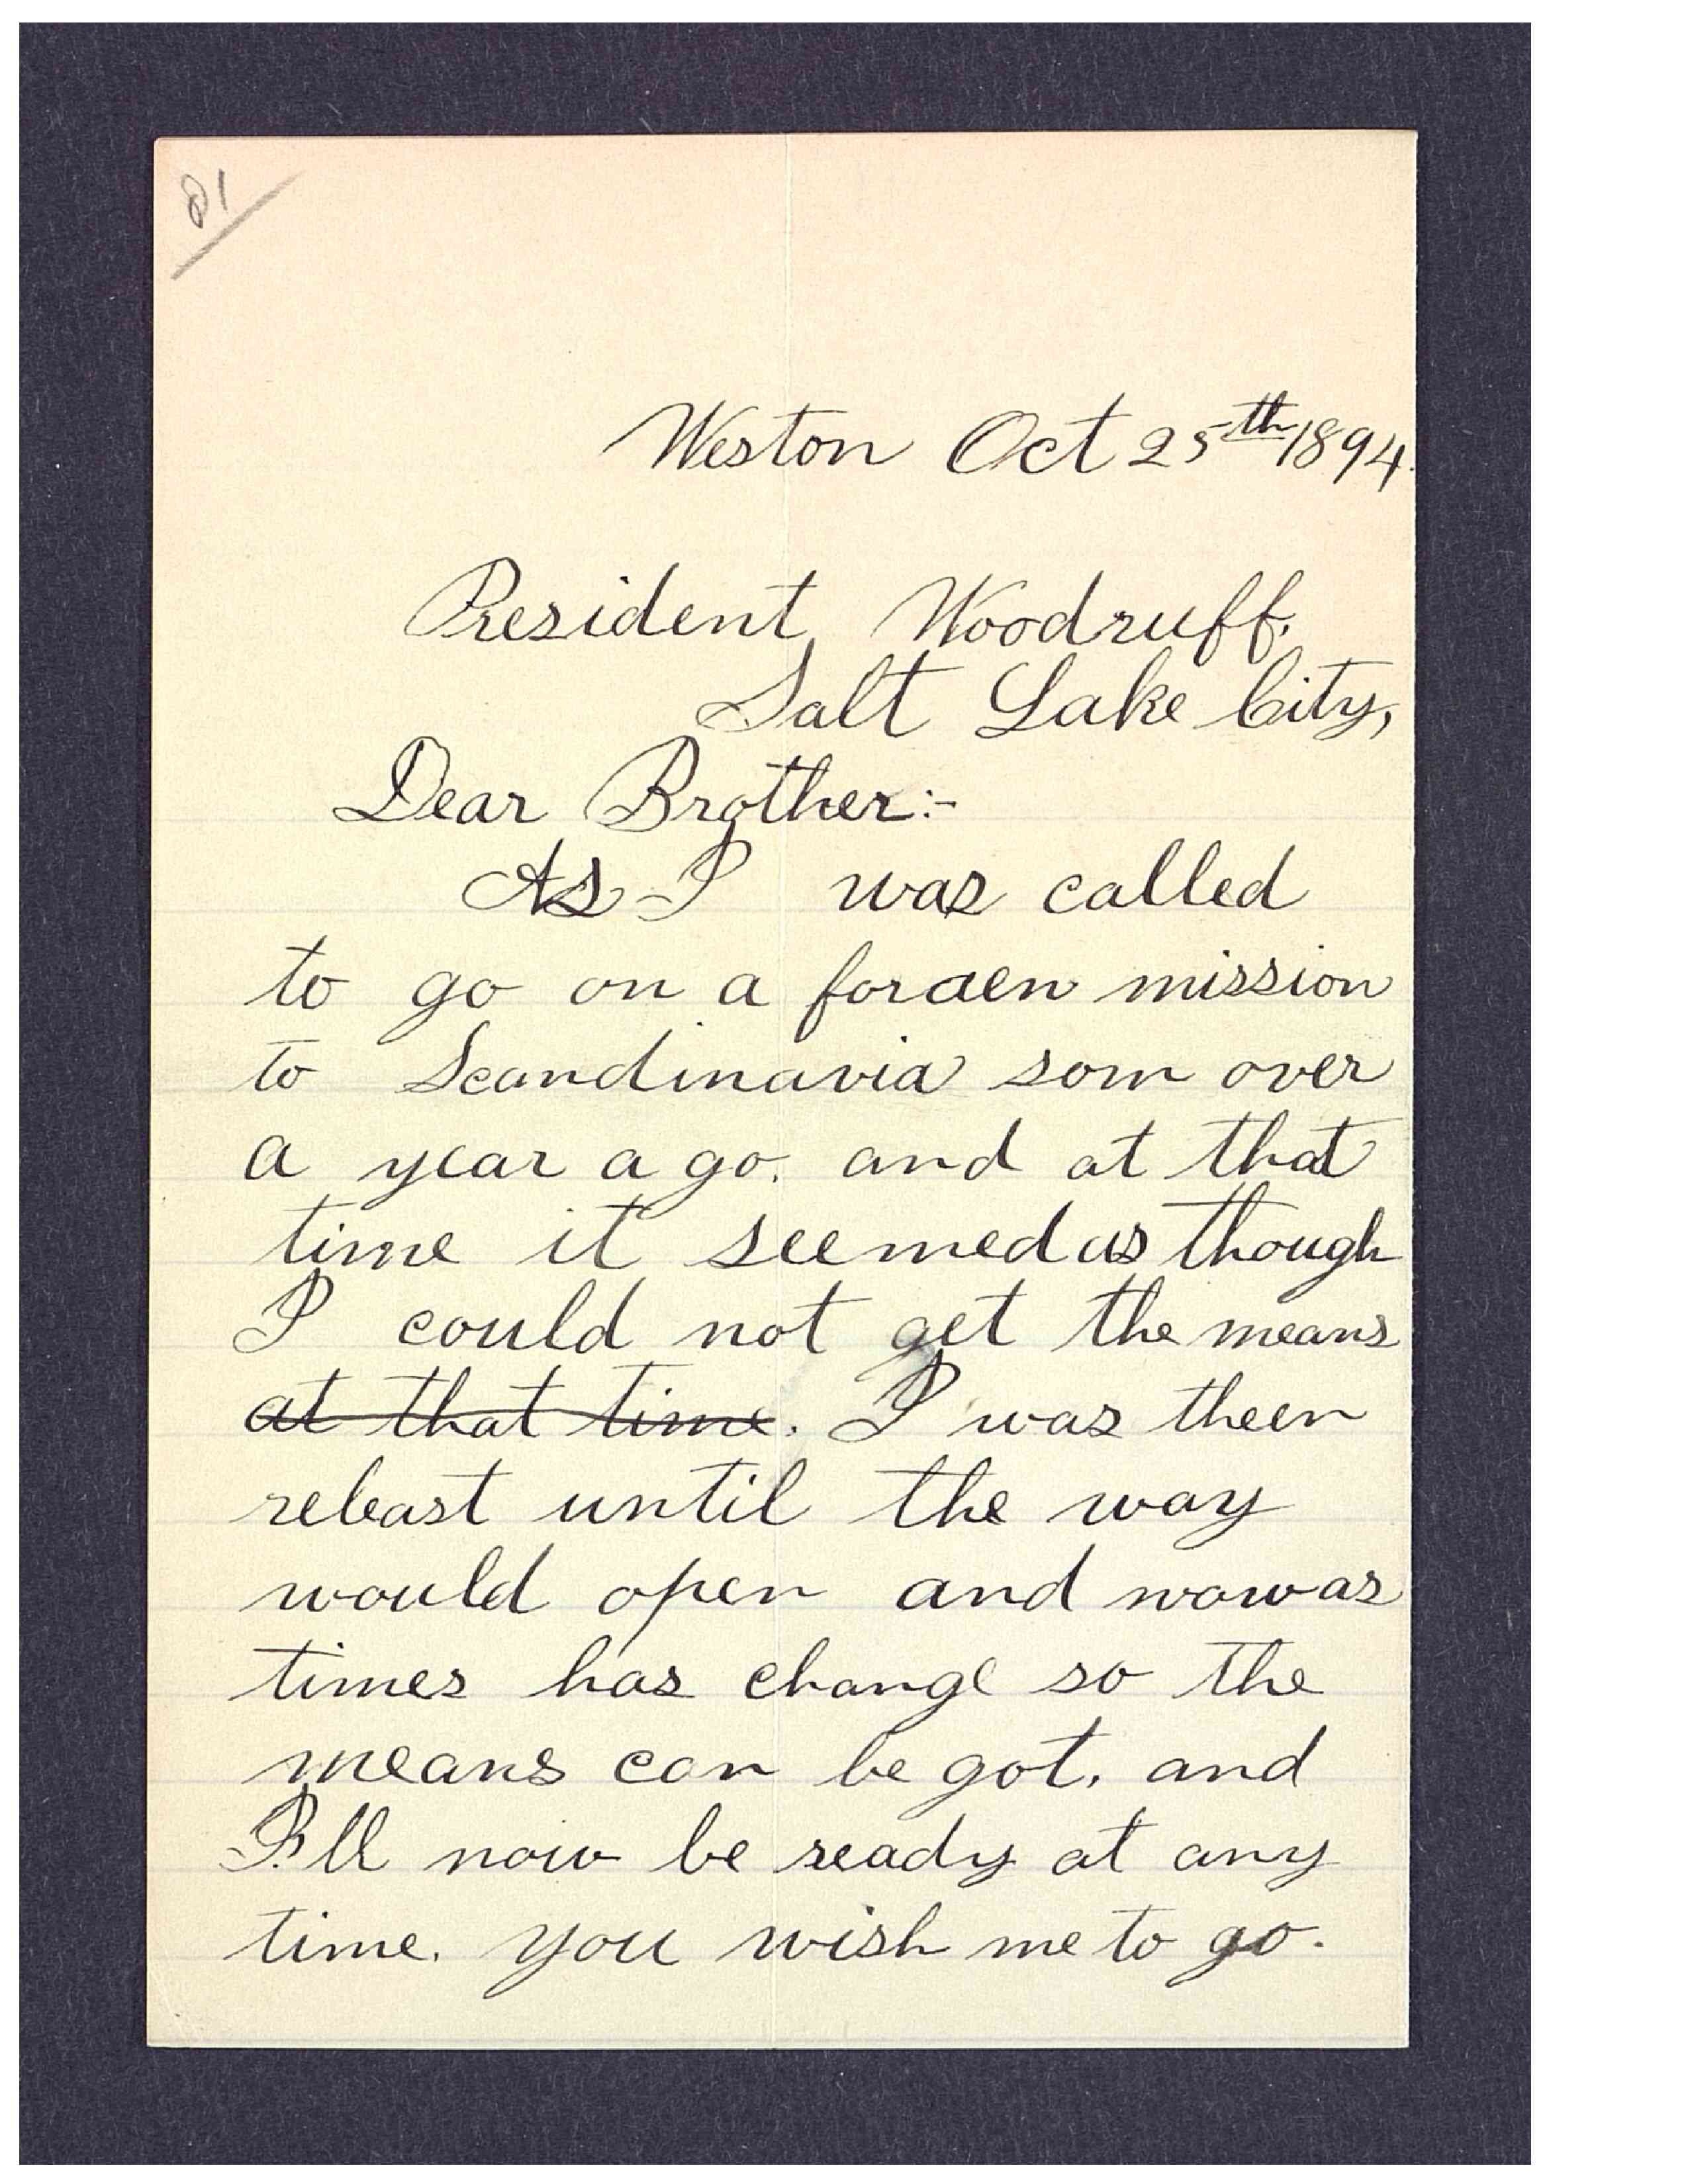 21
Weston Oct 25th 1894.
President Woodruff.
Salt Lake City,
Dear Brother:-
As I was called
to go on a foraen mission
to Scandinavia som over
a year a go. and at that
time it seemed as though
I could not get the means
~~at that time~~. I was theen
releast until the way
would open and now as
times has change so the
means can be got. and
I'll now be ready at any
time. you wish me to go.